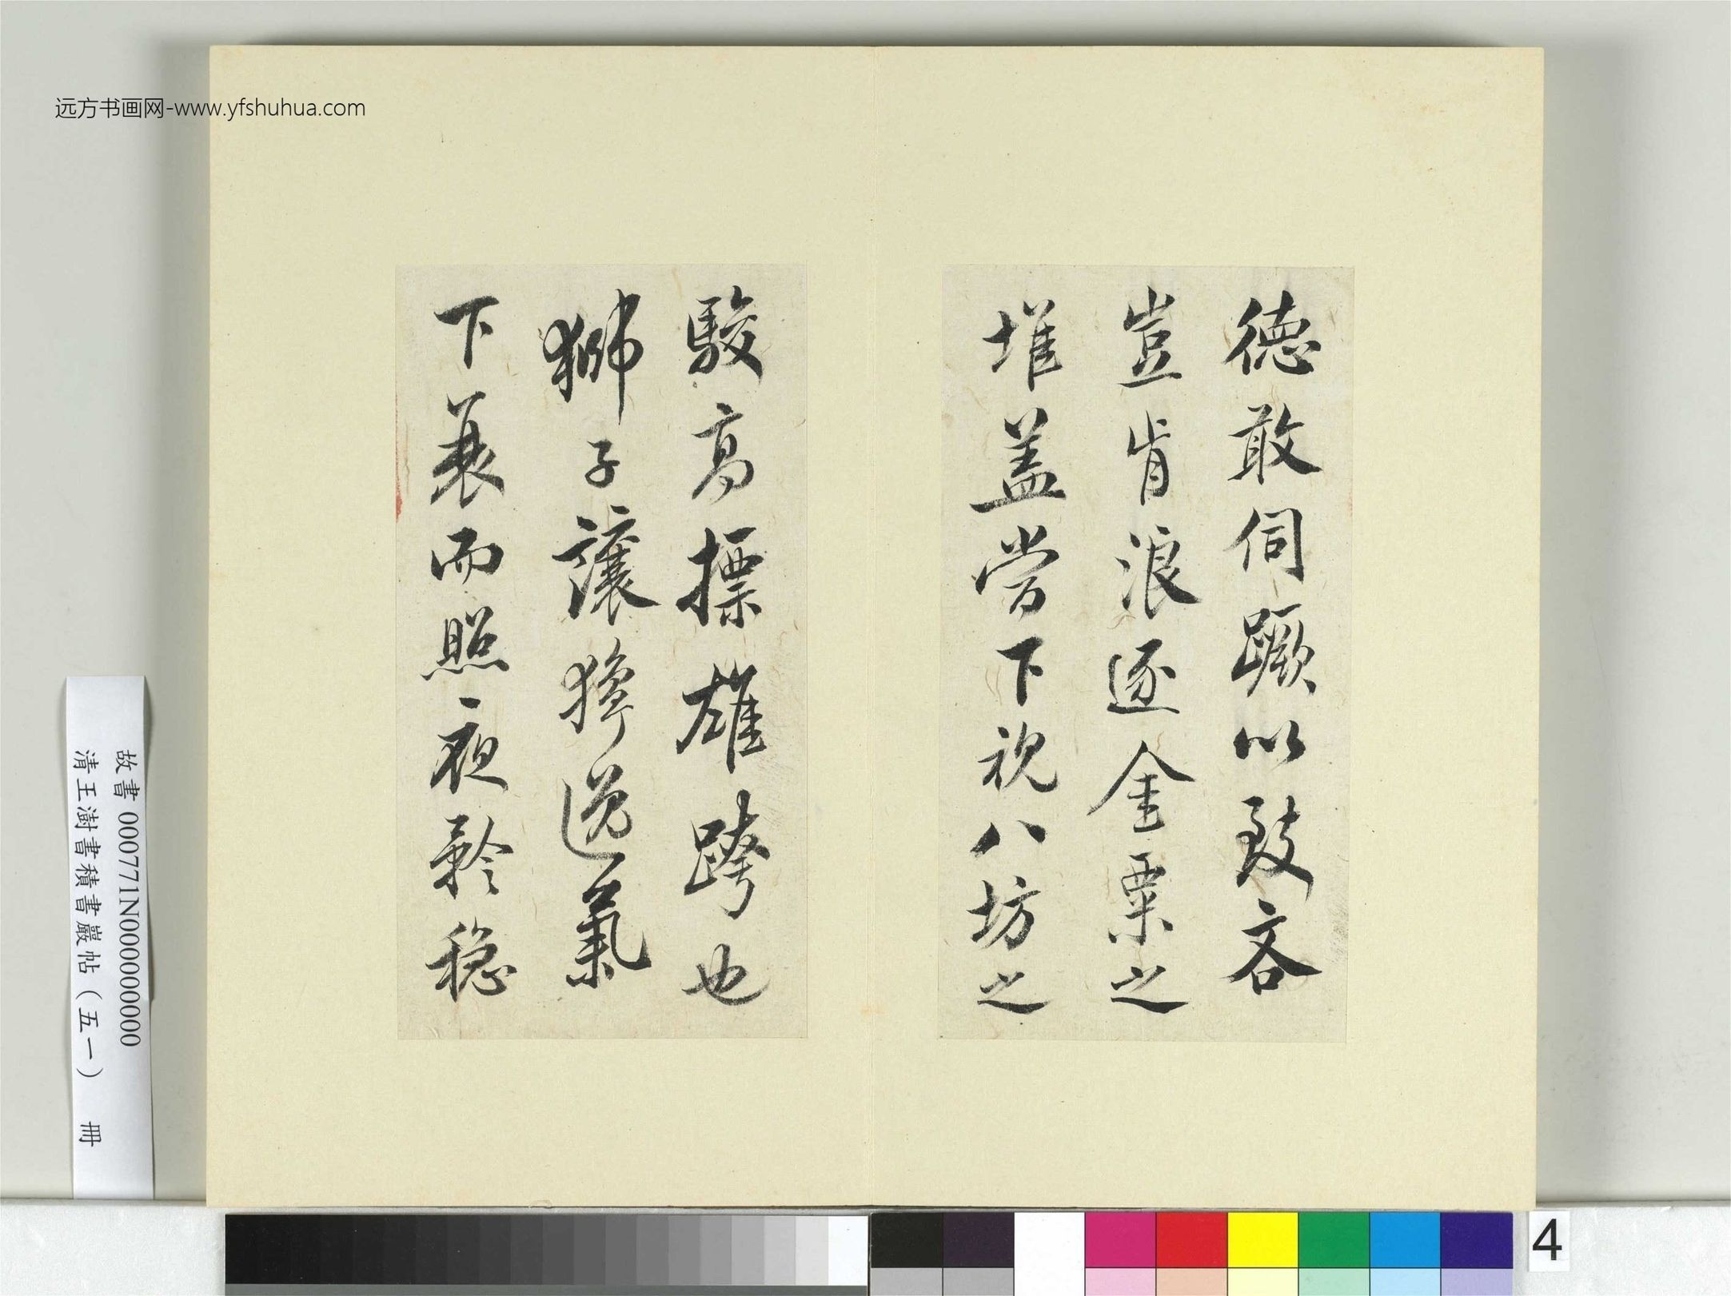 远方书画网-www.yfshuhua.com
德敢伺蹶以致吝
豈肯浪逐金粟之
堆盖嘗下視八坊之
駿高摽雄跨也
獅子讓獰逸氣
下衰而照夜矜穏
故書 000771N000000000
清王澍書積書巖帖(五一) 冊
4